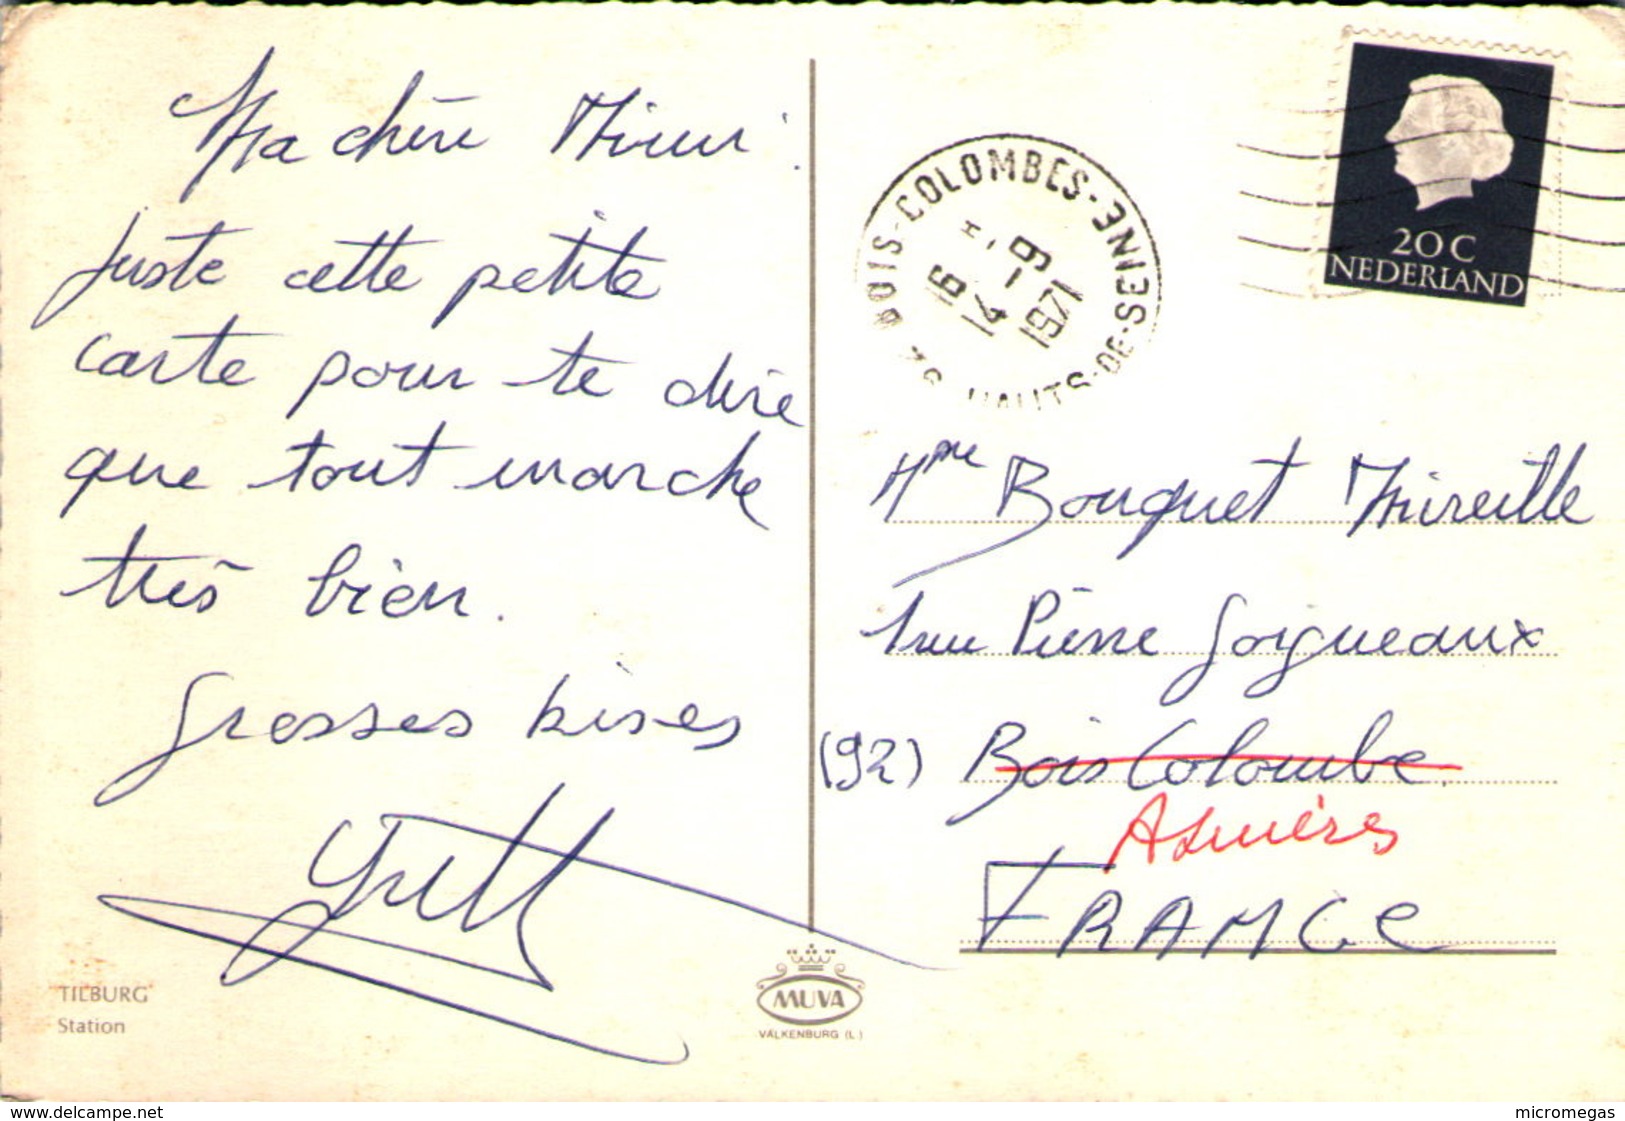 Ma chère Mimi
Juste cette petite
carte pour te dire
que tout marche
très bien.
Grosses bises
TILBURG
Station
MUVA
VALKENBURG (L)
BOIS-COLOMBES
HAUTS-DE-SEINE
16 H
14 - 9
1971
20 C
NEDERLAND
Mme Bouquet Mireille
1 rue Pierre Joigneaux
(92) Bois Colombe
Asnières
FRANCe
www.delcampe.net
micromegas